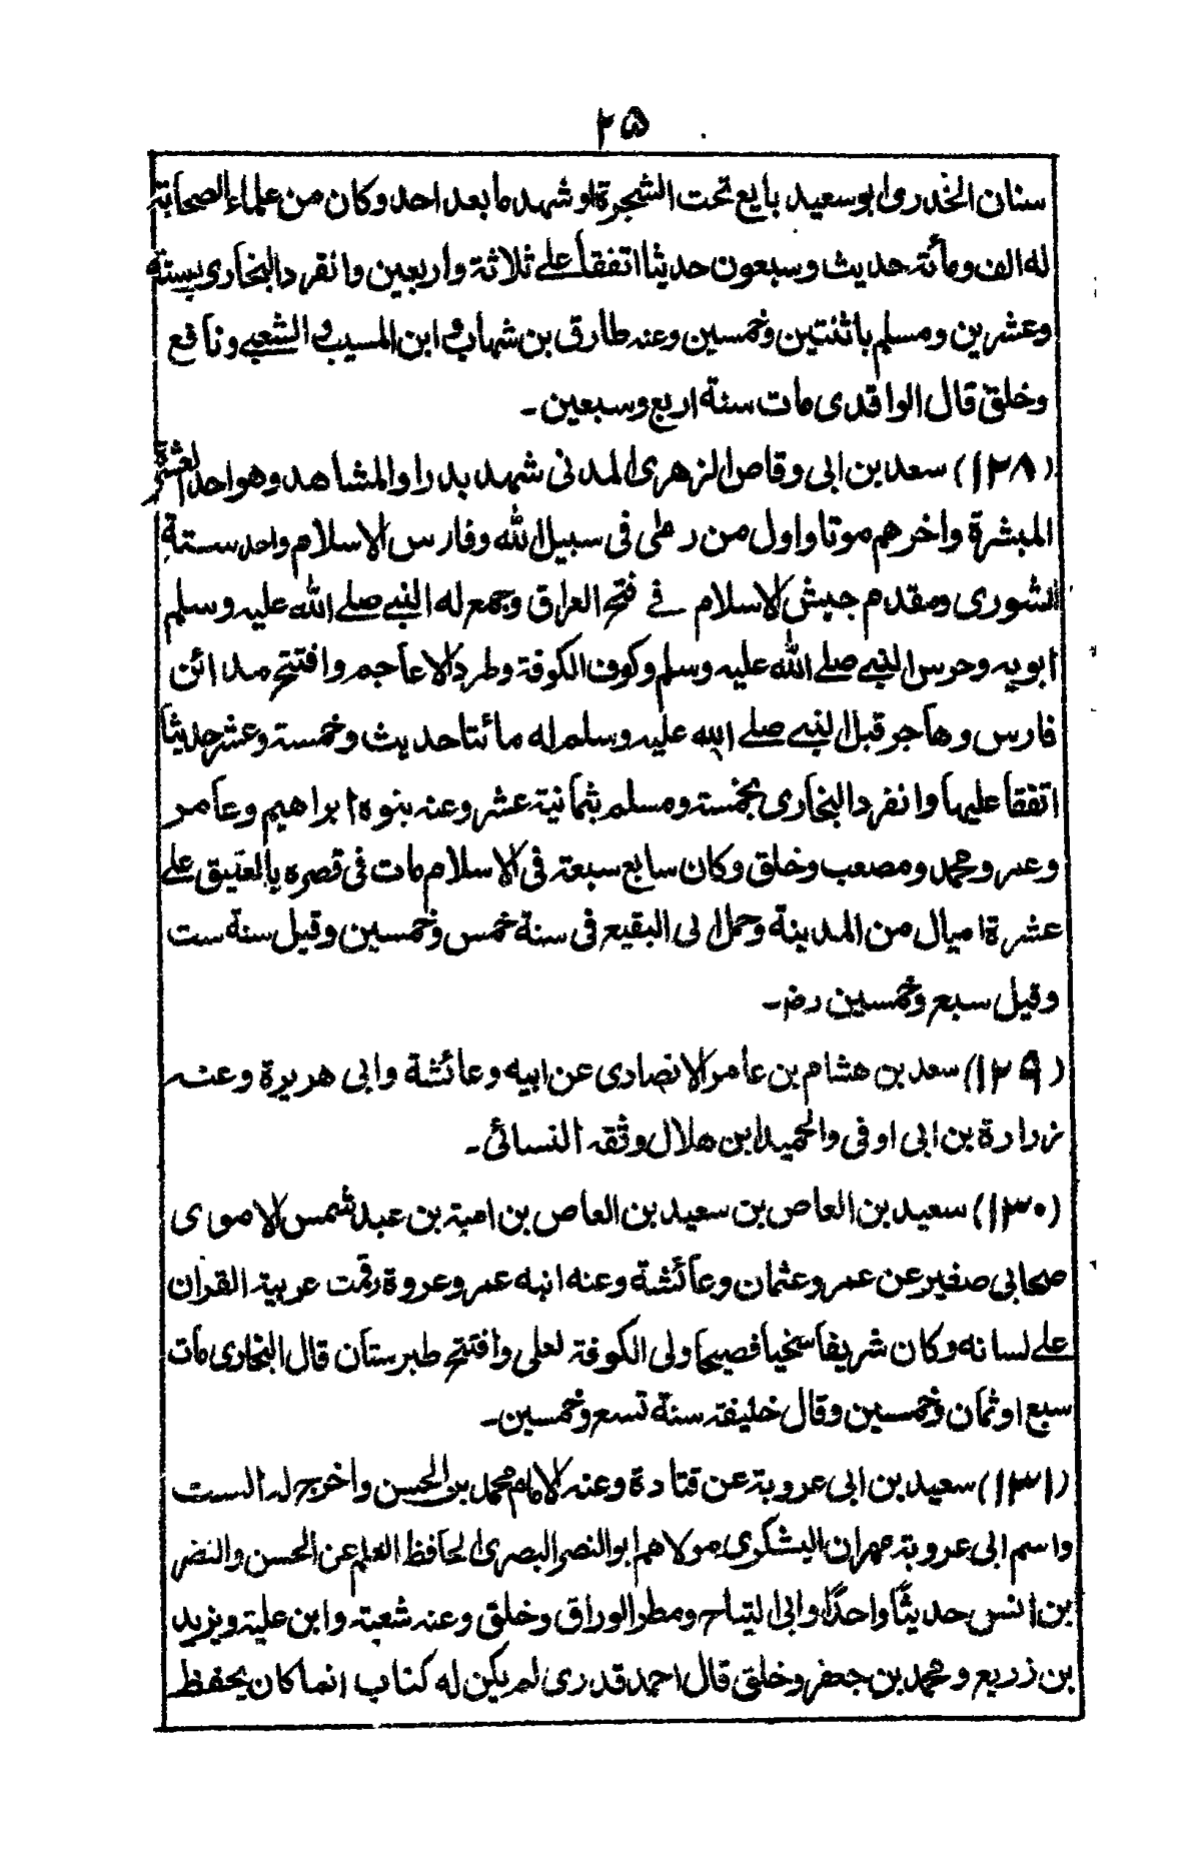 ۲۵
سنان الخدری ابو سعید بایع تحت الشجرة و شهد ما بعد احد و کان من علماء الصحابة
له الف و مائة حدیث و سبعون حدیثا اتفقا علے ثلاثة و اربعین و انفرد البخاری بستة
و عشرین و مسلم باثنتین و خمسین و عنه طارق بن شهاب و ابن المسیب و الشعبے و نافع
و خلق قال الواقدی مات سنة اربع و سبعین۔
(۱۲۸) سعد بن ابی وقاص الزهری المدنی شهد بدرا و المشاهد و هو احد العشرة
المبشرة و اخرهم موتا و اول من رمی فی سبیل الله و فارس الاسلام و احد ستة
الشوری و مقدم جیش الاسلام فے فتح العراق و جمع له النبے صلے الله علیه و سلم
ابویه و حرس النبے صلے الله علیه و سلم و کوف الکوفة و طرد الاعاجم و افتتح مدائن
فارس و هاجر قبل النبے صلے الله علیه و سلم له مائتا حدیث و خمسة و عشر حدیثا
اتفقا علیها و انفرد البخاری بخمسة و مسلم بثمانیة عشر و عنه بنوه ابراهیم و عامر
و عمر و محمد و مصعب و خلق و کان سابع سبعة فی الاسلام مات فی قصره بالعتیق علے
عشرة امیال من المدینة و حمل الی البقیع فی سنة خمس و خمسین و قیل سنة ست
و قیل سبع و خمسین رضـ۔
(۱۲۹) سعد بن هشام بن عامر الانصاری عن ابیه و عائشة و ابی هریرة و عنه
زرارة بن ابی اوفی و الحمید ابن هلال وثقه النسائی۔
(۱۳۰) سعید بن العاص بن سعید بن العاص بن امیة بن عبد شمس الاموی
صحابی صغیر عن عمر و عثمان و عائشة و عنه ابنه عمر و عروة رقمت عربیة القران
علے لسانه و کان شریفا سخیا فصیحا ولی الکوفة لعلی و افتتح طبرستان قال البخاری مات
سبع او ثمان و خمسین و قال خلیفة سنة تسع و خمسین۔
(۱۳۱) سعید بن ابی عروبة عن قتادة و عنه الامام محمد بن الحسن و اخرج له الست
و اسم ابی عروبة مهران الیشکری مولاهم ابو النصر البصری الحافظ العلم عن الحسن و النضر
بن انس حدیثًا واحدًا و ابی التیاح و مطر الوراق و خلق و عنه شعبة و ابن علیة و یزید
بن زریع و محمد بن جعفر و خلق قال احمد قدری لم یکن له کتاب انما کان یحفظ